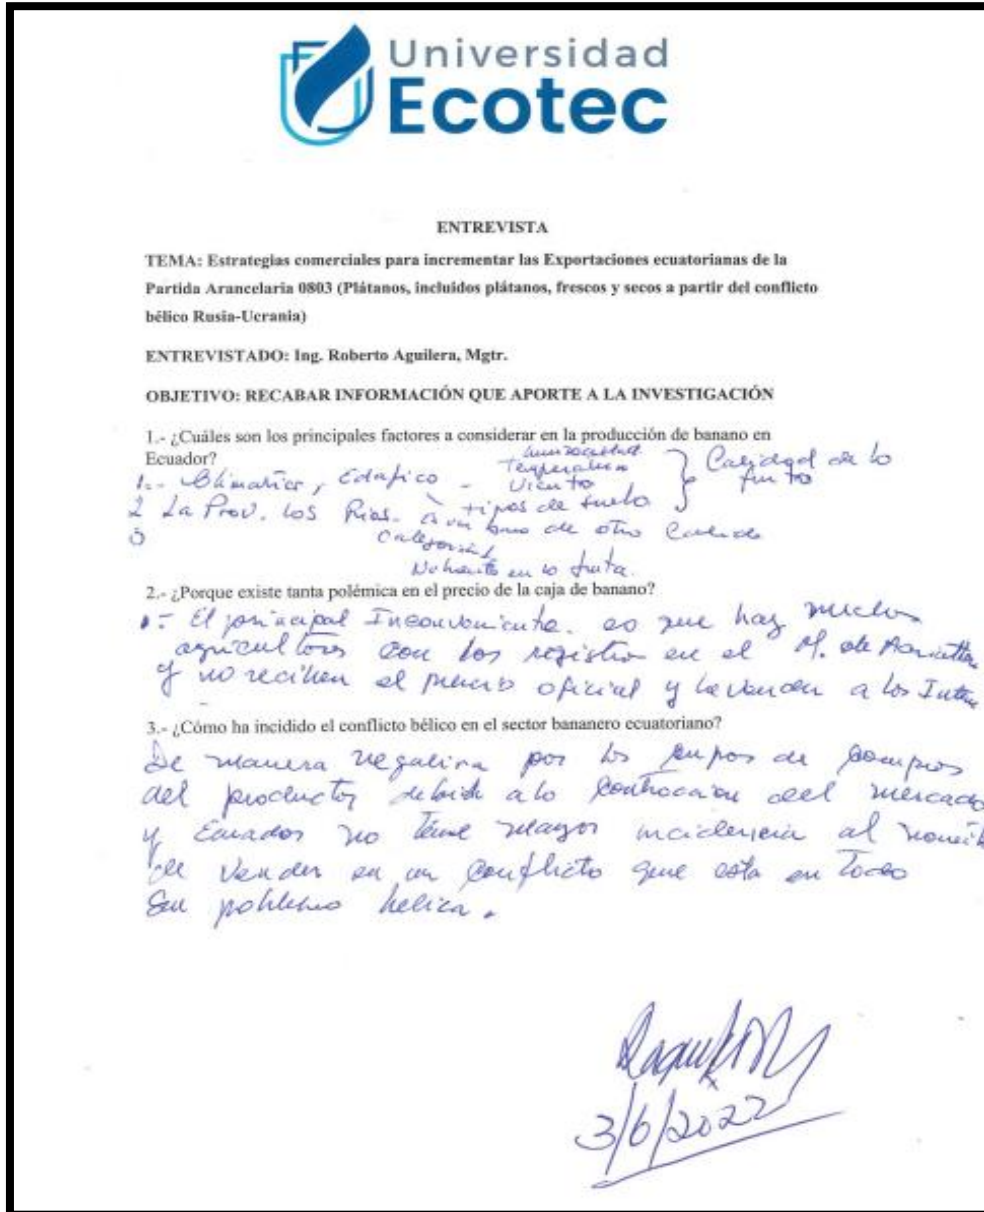 Universidad
Ecotec
ENTREVISTA
TEMA: Estrategias comerciales para incrementar las Exportaciones ecuatorianas de la
Partida Arancelaria 0803 (Plátanos, incluidos plátanos, frescos y secos a partir del conflicto
bélico Rusia-Ucrania)
ENTREVISTADO: Ing. Roberto Aguilera, Mgtr.
OBJETIVO: RECABAR INFORMACIÓN QUE APORTE A LA INVESTIGACIÓN
1.- ¿Cuáles son los principales factores a considerar en la producción de banano en
Ecuador?
Temperatura
1.- Edafico - Viento Calidad de la
fruta
2 La Prov. Los Rios. tipos de suelo
de otro
en la fruta.
2.- ¿Porque existe tanta polémica en el precio de la caja de banano?
El principal Inconveniente. es que hay muchos
agricultores con los registro en el M. de
y no reciben el precio oficial y la venden a los
3.- ¿Cómo ha incidido el conflicto bélico en el sector bananero ecuatoriano?
De manera negativa por los cupos de compras
del producto debido a la contraccion del mercado
y Ecuador no tiene mayor incidencia al
de vender en un conflicto que esta en todo
su belica.
3/6/2022